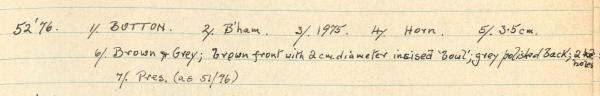 52'76. 1/. BUTTON. 2/. B'ham. 3/. 1975. 4/. Horn. 5/. 3.5cm.
6/. Brown & Grey; brown front with 2cm.diameter insised 'boul'; grey polished back; 2 holes
7/. Pres. (as 51/76)